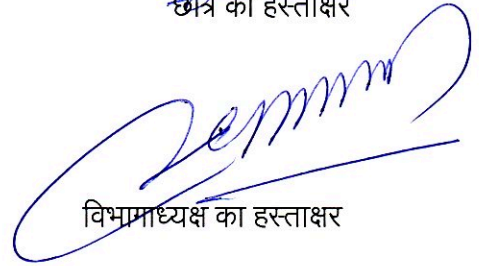 छात्र का हस्ताक्षर
विभागाध्यक्ष का हस्ताक्षर